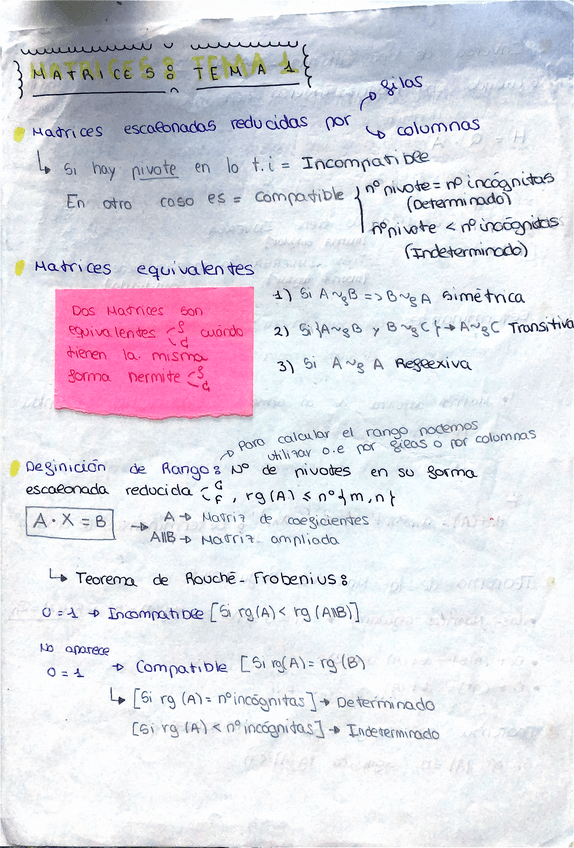 MATRICES: TEMA 1
Matrices escalonadas reducidas por → filas
↳ columnas
↳ Si hay pivote en lo t.i = Incompatible
En otro caso es = compatible { nº pivote = nº incógnitas
(Determinado)
nº pivote < nº incógnitas
(Indeterminado)
Matrices equivalentes
Dos Matrices son
equivalentes < f c cuándo
tienen la misma
forma hermite < f c
1) Si A ~f B => B ~f A Simétrica
2) Si {A ~f B y B ~f C} → A ~f C Transitiva
3) Si A ~f A Reflexiva
→ Para calcular el rango podemos
utilizar o.e por filas o por columnas
Definición de Rango: Nº de pivotes en su forma
escalonada reducida < c f , rg(A) ≤ nº{m,n}
A · X = B
→ A → Matriz de coeficientes
A||B → Matriz ampliada
↳ Teorema de Rouché-Frobenius:
0 = 1 → Incompatible [Si rg(A) < rg(A||B)]
No aparece
0 = 1
→ Compatible [Si rg(A) = rg(B)
↳ [Si rg(A) = nº incógnitas] → Determinado
[Si rg(A) < nº incógnitas] → Indeterminado